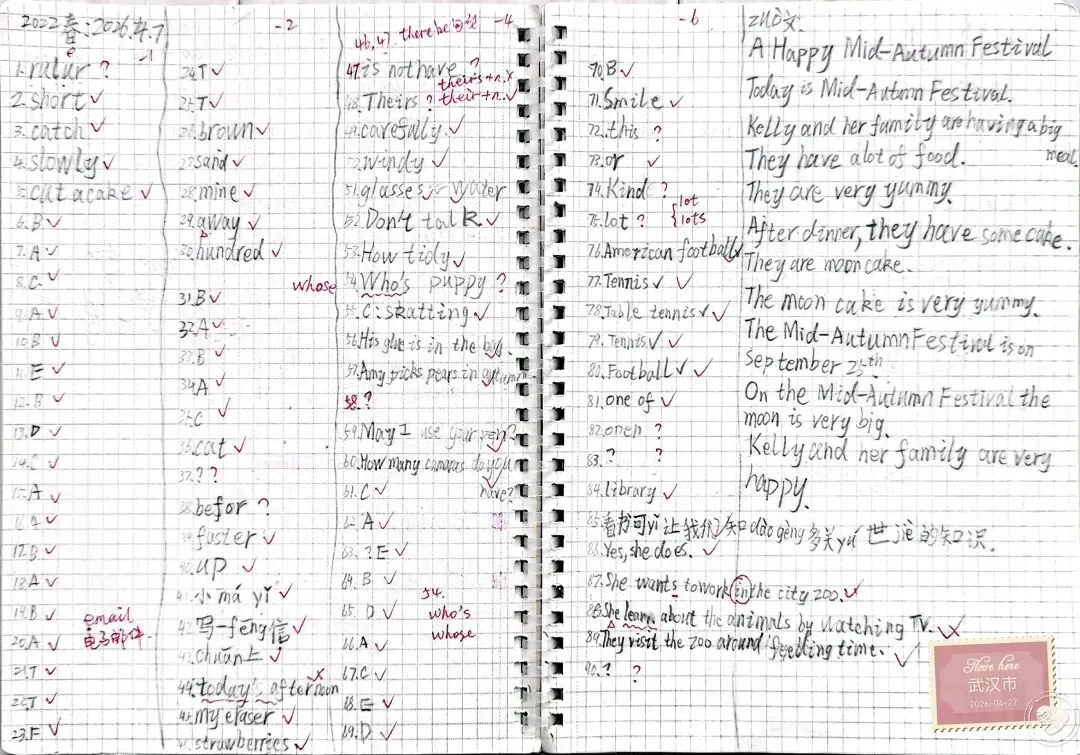 2022春:2026.4.7
-1
1.rulur ?
e
2.short ✓
3.catch ✓
4.slowly ✓
5.cut a cake ✓
6.B ✓
7.A ✓
8.C ✓
9.A ✓
10.B ✓
11.E ✓
12.B ✓
13.D ✓
14.C ✓
15.A ✓
16.A ✓
17.B ✓
18.A ✓
19.B ✓
20.A ✓
21.T ✓
22.T ✓
23.F ✓
email
电子邮件
-2
24.T ✓
25.T ✓
26.brown ✓
27.sand ✓
28.mine ✓
29.away ✓
30.hundred ✓
31.B ✓
32.A ✓
33.B
34.A ✓
35.C ✓
36.cat ✓
37.? ?
38.befor ?
39.faster ✓
40.up ✓
41.小má yǐ ✓
42.写一fēng信 ✓
43.chuān上 ✓
44.today's afternoon
45.my eraser ✓
46.strawberries ✓
-4
46,47. there be
47.is not have ?
theirs+n.×
48.Theirs ? their+n.✓
49.carefully ✓
50.windy ✓
51.glasses water
52.Don't talk ✓
53.How tidy ✓
whose
54.Who's puppy ?
55.C: skatting ✓
56.His glue is in the bag.
57.Amy picks pears in autumn.
58.?
59.May I use your pen?
60.How many cameras do you have?
61.C ✓
62.A ✓
63.?E ✓
64.B ✓
65.D ✓
66.A ✓
67.C ✓
68.E ✓
69.D ✓
54.
who's
whose
-6
70.B ✓
71.Smile ✓
72.this ?
73.or ✓
74.Kind ?
75.lot ? { lot
lots
76.American football ✓
77.Tennis ✓ ✓
78.Table tennis ✓ ✓
79.Tennis ✓ ✓
80.Football ✓ ✓
81.one of ✓
82.open ?
83.? ?
84.library ✓
85.看书可yǐ让我们知dào gèng多关yú世jiè的知识.
86.Yes, she does. ✓
87.She wants to work in the city zoo.
88.She learn about the animals by watching TV.
89.They visit the zoo around feeding time. ✓
90.? ?
zuò文
A Happy Mid-Autumn Festival
Today is Mid-Autumn Festival.
Kelly and her family are having a big
meal.
They have a lot of food.
They are very yummy.
After dinner, they have some cake.
They are moon cake.
The moon cake is very yummy.
The Mid-Autumn Festival is on
September 25th
On the Mid-Autumn Festival the
moon is very big.
Kelly and her family are very
happy.
I love here
武汉市
2026-04-27